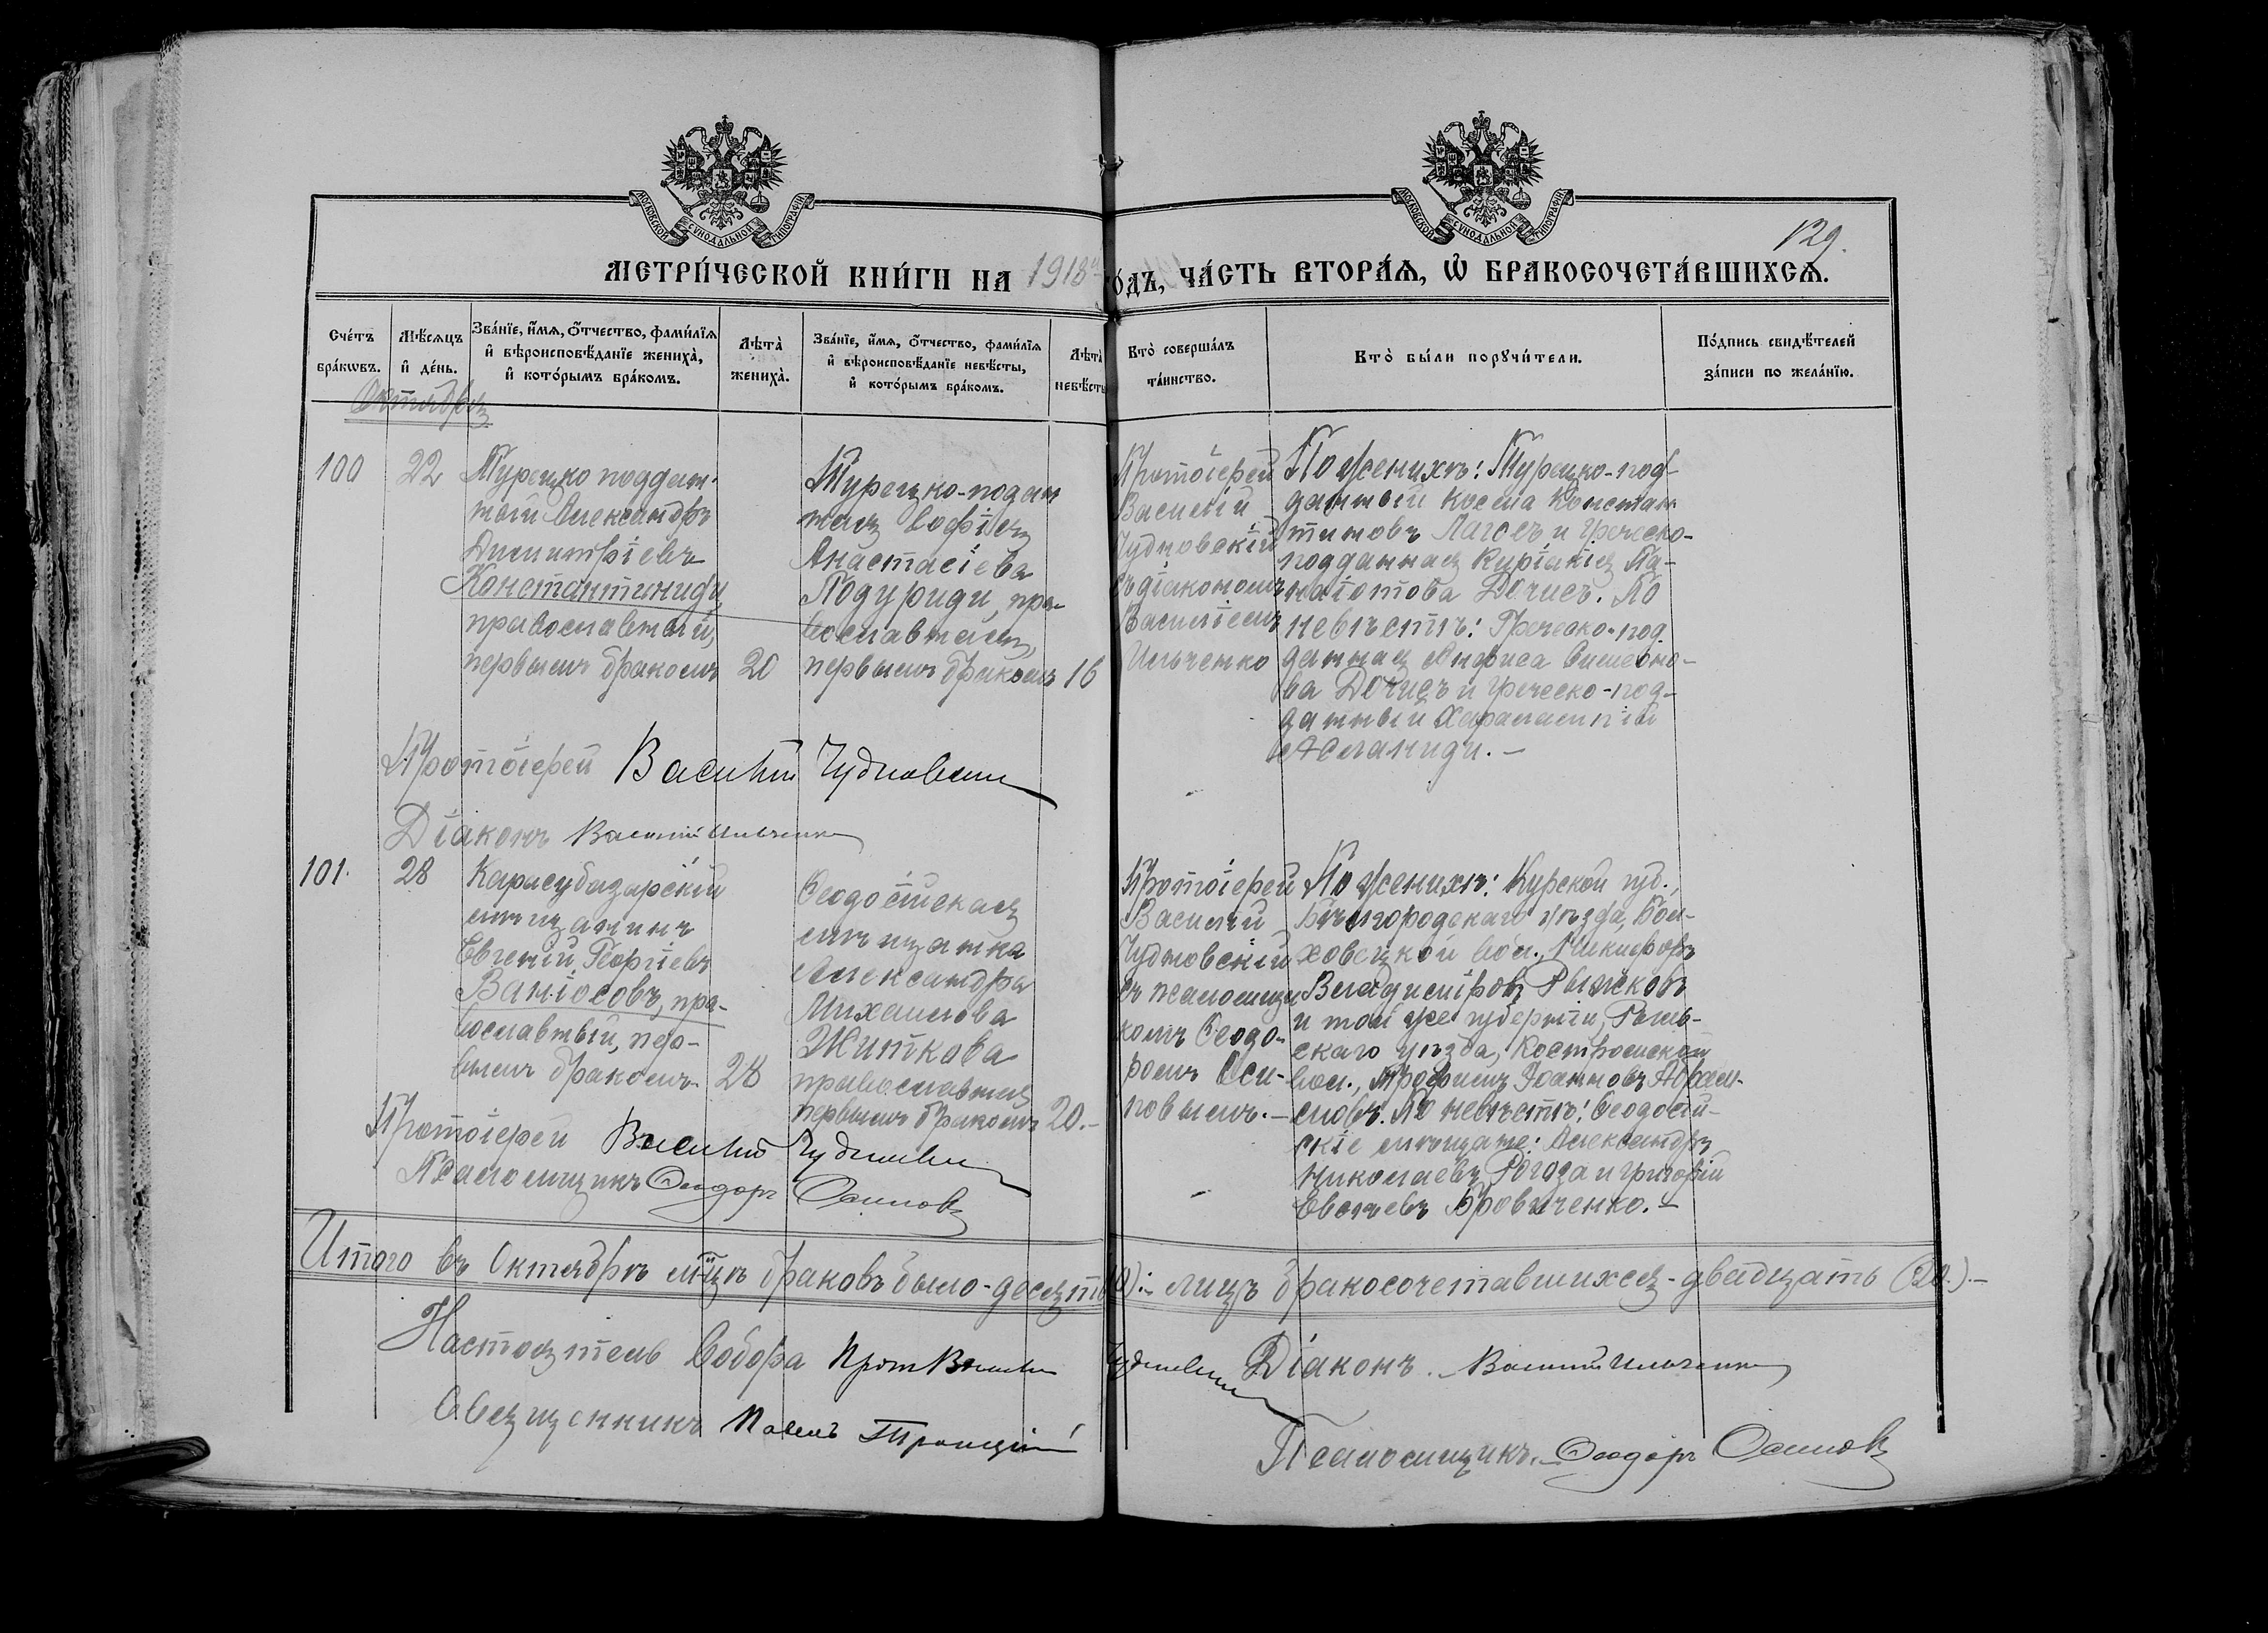 МОСКОВСКОЙ СѴНОДАЛЬНОЙ ТИПОГРАФІИ
МОСКОВСКОЙ СѴНОДАЛЬНОЙ ТИПОГРАФІИ
129.
МЕТРИ́ЧЕСКОЙ КНИ́ГИ НА 1918й го́дъ, ЧА́СТЬ ВТОРА́Я, Ѡ БРАКОСОЧЕТА́ВШИХСЯ.
Сче́тъ бра́кѡвъ.
Мѣ́сяцъ и де́нь.
Зва́нїе, и́мя, о́тчество, фами́лїя и вѣроисповѣ́данїе жениха̀, и кото́рымъ бра́комъ.
Лѣта̀ жениха̀.
Зва́нїе, и́мя, о́тчество, фами́лїя и вѣроисповѣ́данїе невѣ́сты, и кото́рымъ бра́комъ.
Лѣта̀ невѣ́сты
Кто̀ соверша́лъ та́инство.
Кто̀ бы́ли порꙋчи́тели.
По́дпись свидѣ́телей за́писи по жела́нїю.
Октябрь
100
22
Турецко поддан-
ный Александръ
Димитріевъ
Константиниди,
православный,
первымъ бракомъ
20
Турецко-поддан
ная Софія
Анастасіева
Подуриди, пра-
вославная,
первымъ бракомъ
16
Протоіерей
Василій
Чудновскій
съ діакономъ
Василіемъ
Ильченко
По женихѣ: Турецко-под-
данный Косма Констан
тиновъ Лагосъ и Греческо-
подданная Киріакія Па-
наіотова Дочисъ. По
невѣстѣ: Греческо-под
данная Анфиса Симеоно-
ва Дочисъ и Греческо-под-
данный Харалампій
Асланиди. —
Протоіерей Василій Чудновскій
Діаконъ Василій Ильченко
101.
28
Карасубазарскій
мѣщанинъ
Евгеній Георгіевъ
Ваніосовъ, пра-
вославный, пер-
вымъ бракомъ.
28
Ѳеодосійская
мѣщанка
Александра
Михаилова
Житкова
православная
первымъ бракомъ
20.-
Протоіерей
Василій
Чудновскій
съ псаломщи
комъ Ѳеодо-
ромъ Оси-
повымъ. —
По женихѣ: Курской губ.,
Бѣлгородскаго уѣзда, Бол-
ховецкой вол., Никифоръ
Владиміровъ Рыжковъ
и той же губерніи, Рыль-
скаго уѣзда, Костромской
вол., Трофимъ Іоанновъ Абрам-
совъ. По невѣстѣ: Ѳеодосій-
скіе мѣщане: Александръ
Николаевъ Рогоза и Григорій
Евсѣевъ Бровченко. —
Протоіерей Василій Чудновскій
Псаломщикъ Ѳеодоръ Осиповъ
Итого въ Октябрѣ м-цѣ браковъ было-десять (10):- лицъ бракосочетавшихся-двадцать (20.).—
Настоятель Собора Прот Василій Чудновскій Діаконъ. Василій Ильченко
Священникъ Павелъ Троицкій
Псаломщикъ. Ѳеодоръ Осиповъ